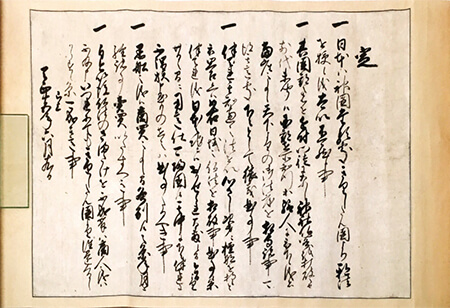 定
一 日本ハ神国たる処きりしたん国より邪法
を授候儀太以不可然候事
一 其国郡之者を近付門徒になし神社仏閣を打破之由
前代未聞候国郡在所知行等給人に被下候儀
は当座之事候天下よりの御法度を相守諸事
可得其意処下々として猥義曲事事
一 伴天連其知恵之法を以心さし次第ニ檀那を持候
と被思召候へハ如右日域之仏法を相破事曲事候条
伴天連儀日本之地ニハおかされ間敷候間今日より廿日之
間ニ用意仕可帰国候其中に下々伴天連に
不謂族申懸もの在之ハ曲事たるへき事
一 黒船之儀ハ商買之事候間各別候之条年月を
経諸事売買いたすへき事
一 自今以後仏法のさまたけを不成輩ハ商人之儀ハ
不及申いつれにてもきりしたん国より往還くるし
からす候条可成其意事
已上
天正十五年六月十九日